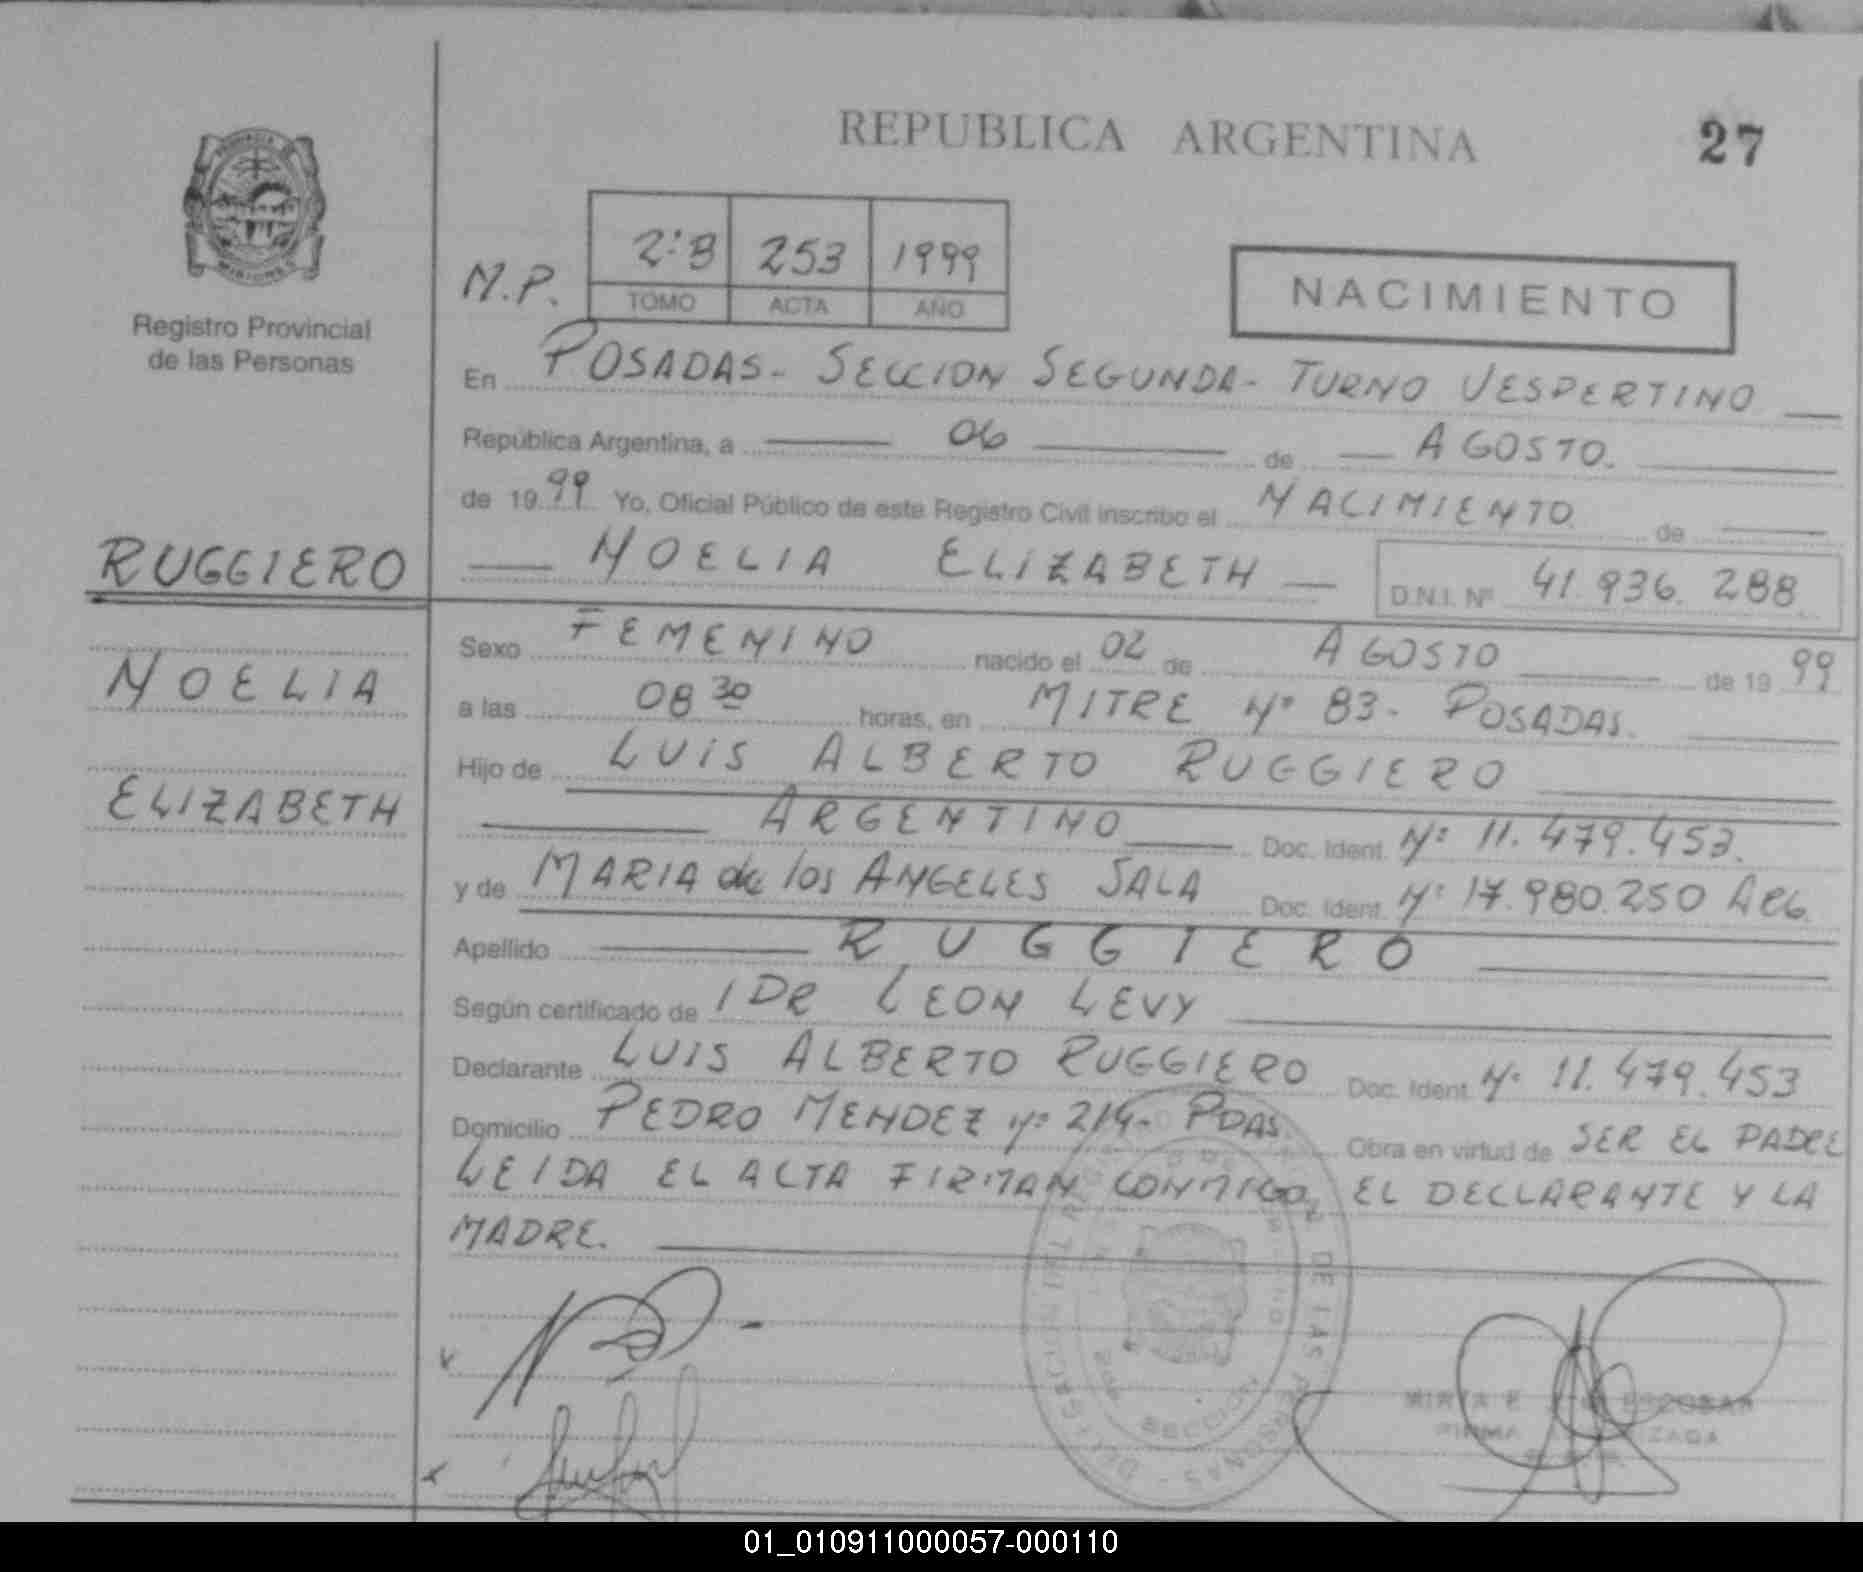 REPUBLICA ARGENTINA
27
PROVINCIA
MISIONES
Registro Provincial
de las Personas
M.P.
2:B 253 1999
TOMO ACTA AÑO
NACIMIENTO
En POSADAS - SECCION SEGUNDA - TURNO VESPERTINO
República Argentina, a 06 de AGOSTO.
de 1999 Yo, Oficial Público de este Registro Civil inscribo el NACIMIENTO de
RUGGIERO
NOELIA ELIZABETH D.N.I. Nº 41.936.288
Sexo FEMENINO nacido el 02 de AGOSTO de 1999
NOELIA
a las 08 30 horas, en MITRE Nº 83 - POSADAS.
Hijo de LUIS ALBERTO RUGGIERO
ELIZABETH
ARGENTINO Doc. Ident. Nº 11.479.453.
y de MARIA de los ANGELES SALA Doc. Ident. Nº 17.980.250 ARG.
Apellido RUGGIERO
Según certificado de 1 DR LEON LEVY
Declarante LUIS ALBERTO RUGGIERO Doc. Ident. Nº 11.479.453
Domicilio PEDRO MENDEZ Nº 214 - PDAS. Obra en virtud de SER EL PADRE
LEIDA EL ACTA FIRMAN CONMIGO, EL DECLARANTE Y LA
MADRE.
DE LAS PERSONAS
SECCION
ESCOBAR
FIRMA
01_010911000057-000110